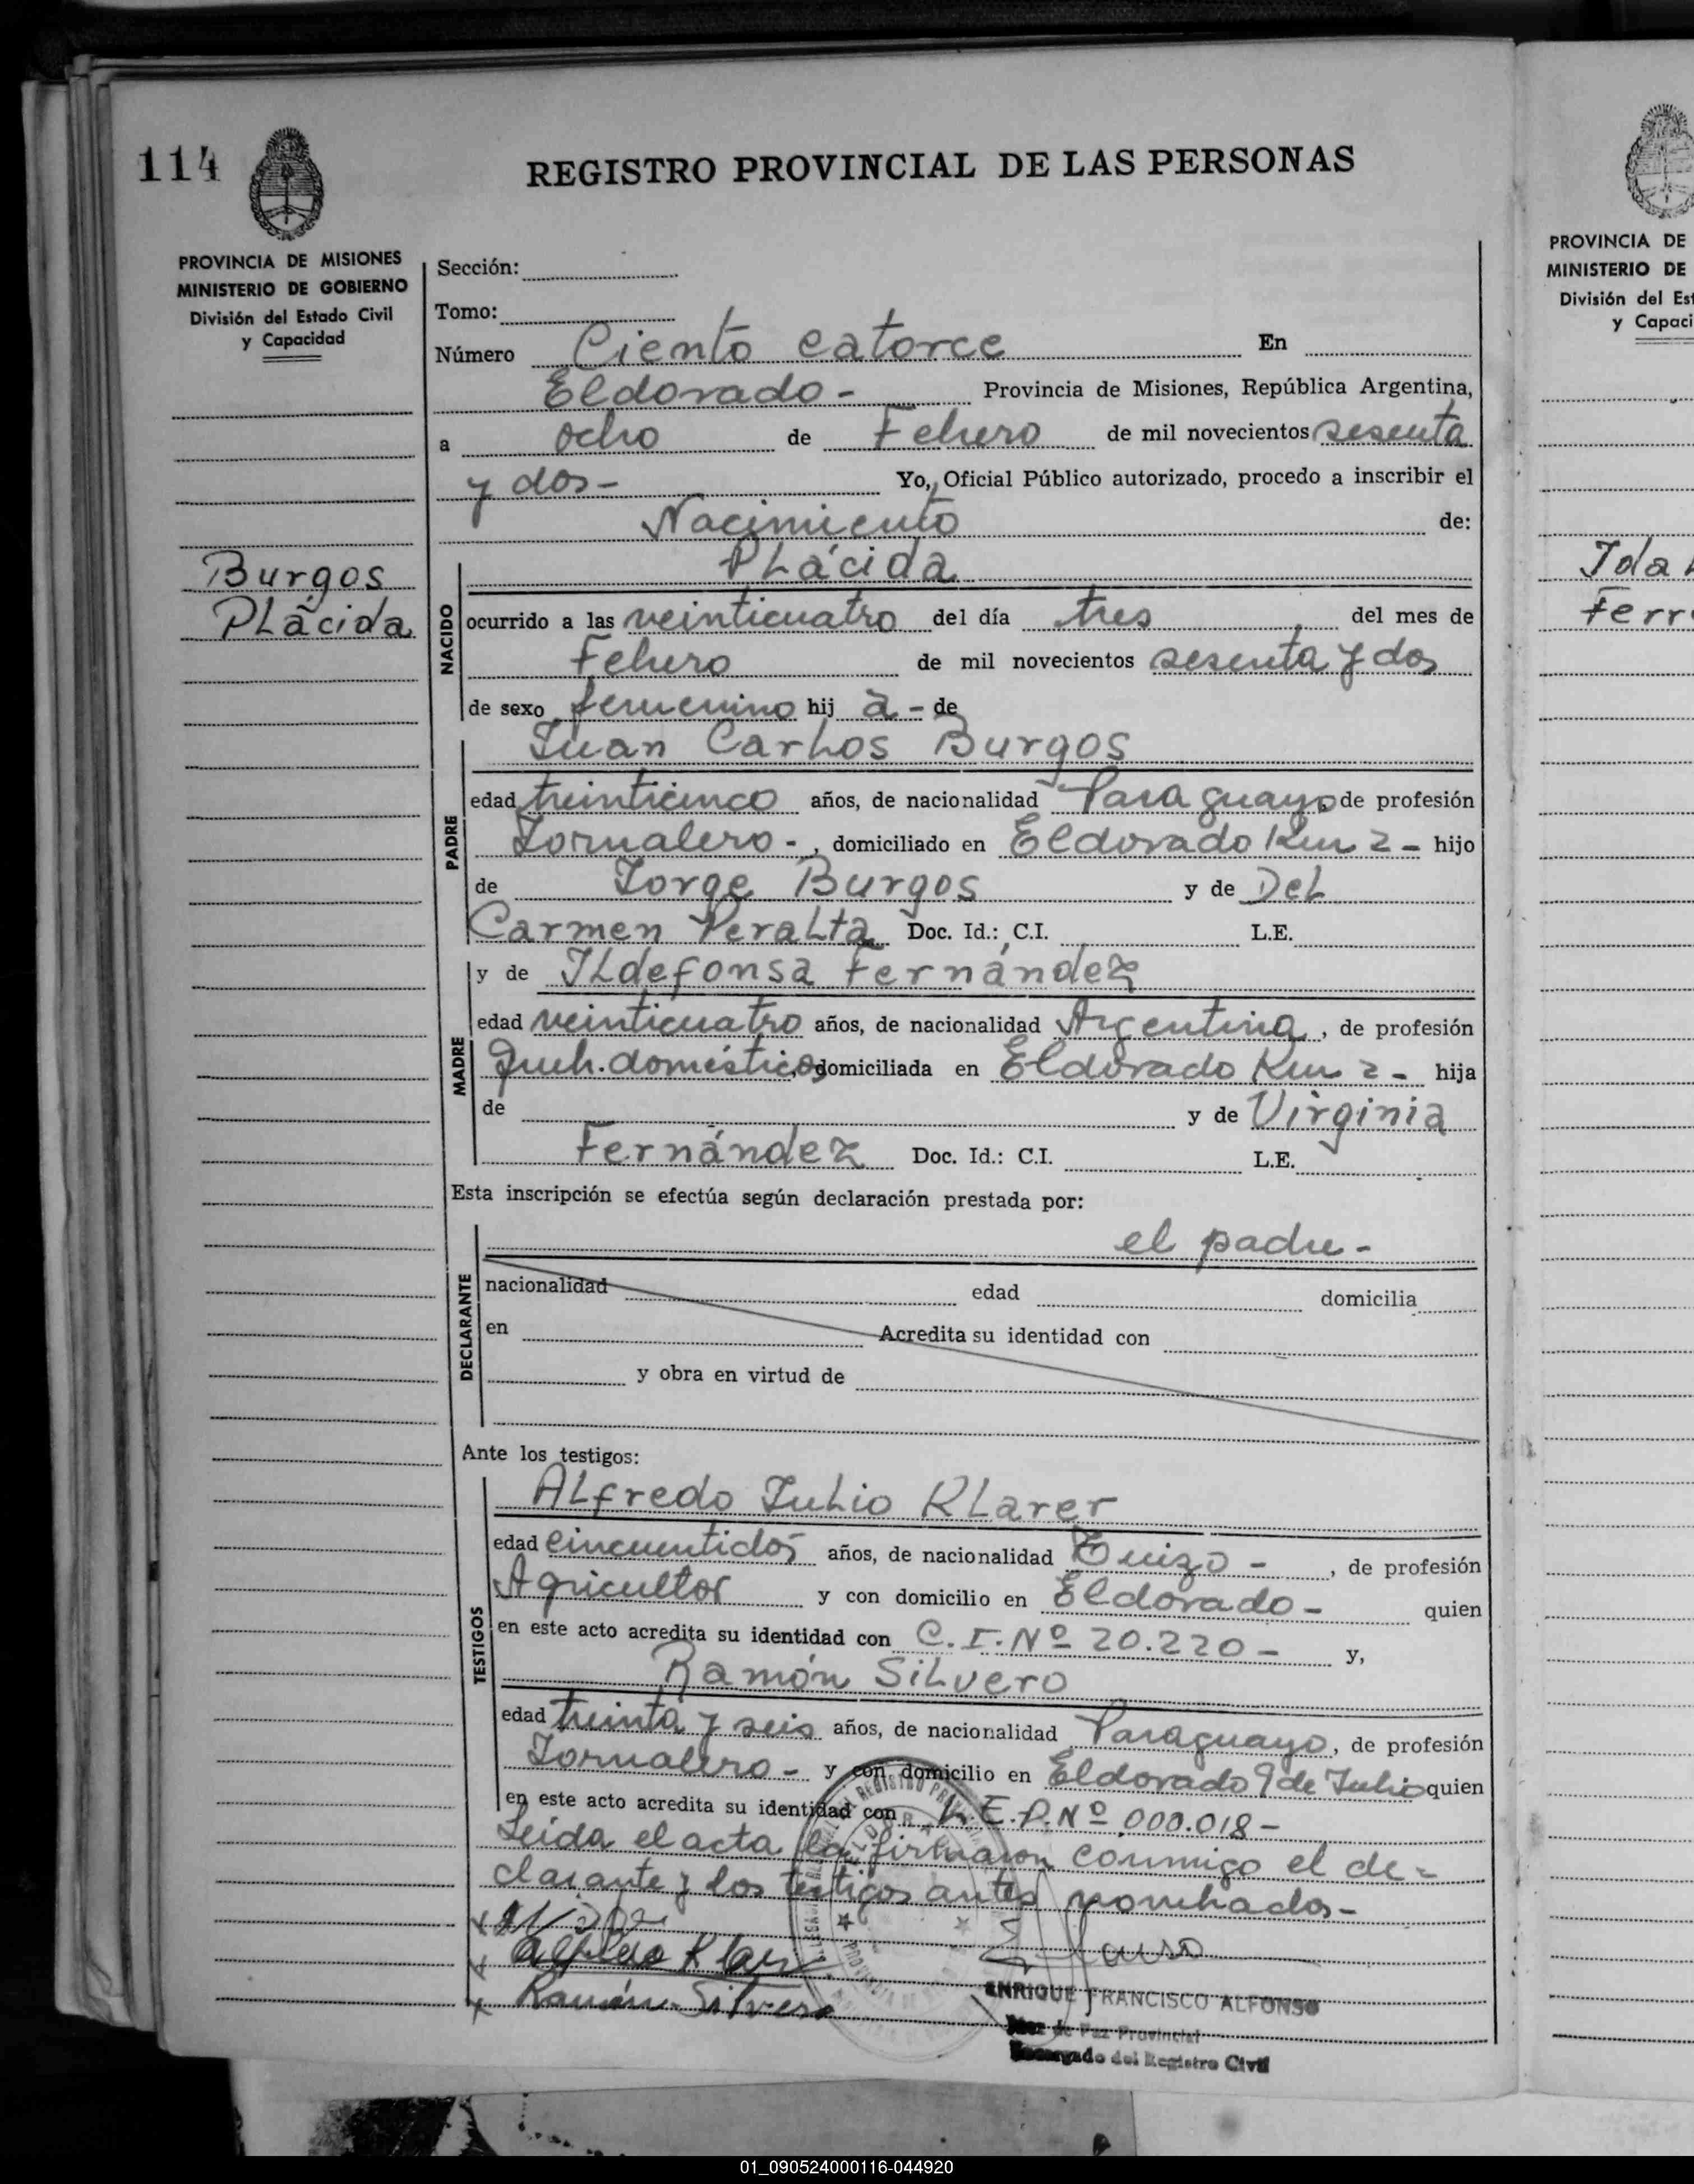 114
REGISTRO PROVINCIAL DE LAS PERSONAS
PROVINCIA DE MISIONES
MINISTERIO DE GOBIERNO
División del Estado Civil
y Capacidad
Burgos
PLácida
Sección:
Tomo:
Número Ciento catorce En
Eldorado - Provincia de Misiones, República Argentina,
a ocho de Febrero de mil novecientos sesenta
y dos - Yo, Oficial Público autorizado, procedo a inscribir el
Nacimiento de:
NACIDO
PLácida
ocurrido a las veinticuatro del día tres del mes de
Febrero de mil novecientos sesenta y dos
de sexo femenino hij a - de
PADRE
Juan Carlos Burgos
edad treinticinco años, de nacionalidad Paraguayo, de profesión
Jornalero - , domiciliado en Eldorado Km 2 - hijo
de Jorge Burgos y de Del
Carmen Peralta Doc. Id.: C.I. L.E.
MADRE
y de Ildefonsa Fernández
edad veinticuatro años, de nacionalidad Argentina, de profesión
Queh. domésticos, domiciliada en Eldorado Km 2 - hija
de y de Virginia
Fernández Doc. Id.: C.I. L.E.
Esta inscripción se efectúa según declaración prestada por:
DECLARANTE
el padre -
nacionalidad edad domicilia
en Acredita su identidad con
y obra en virtud de
Ante los testigos:
TESTIGOS
Alfredo Julio Klarer
edad cincuentidos años, de nacionalidad Suizo - , de profesión
Agricultor y con domicilio en Eldorado - quien
en este acto acredita su identidad con C.I. Nº 20.220 - y,
Ramón Silvero
edad treinta y seis años, de nacionalidad Paraguayo, de profesión
Jornalero - y con domicilio en Eldorado 9 de Julio quien
en este acto acredita su identidad con L.E.P. Nº 000.018 -
Leida el acta la firmaron conmigo el de-
clarante y los testigos antes nombrados -
Ramón Silvero
ENRIQUE FRANCISCO ALFONSO
Juez de Paz Provincial
Encargado del Registro Civil
PROVINCIA DE
MINISTERIO DE
División del Est
y Capaci
Ida
Ferr
01_090524000116-044920